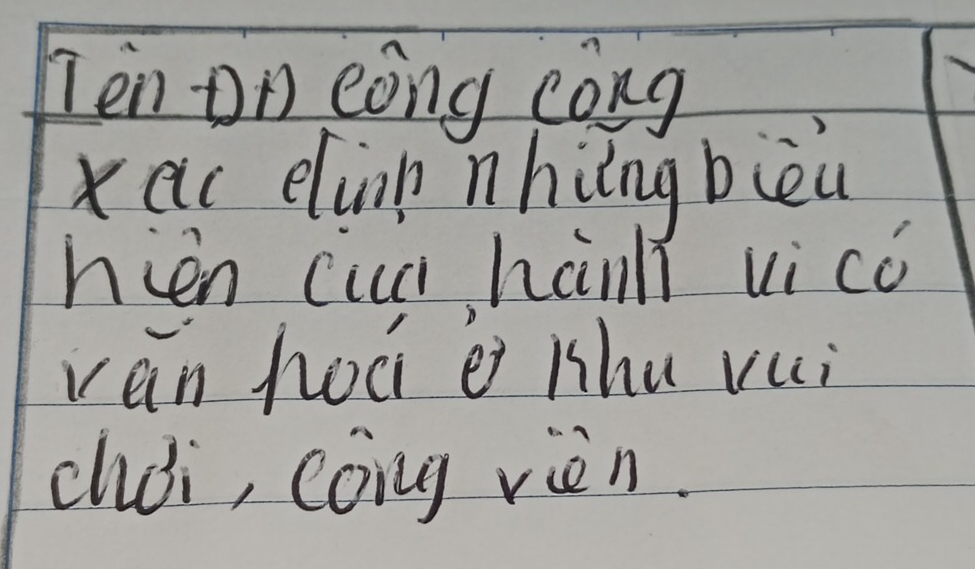 Tên ĐĐ công công
xac định những biểu
hiện của hành vi có
văn hoá ở khu vui
chơi, công viên.